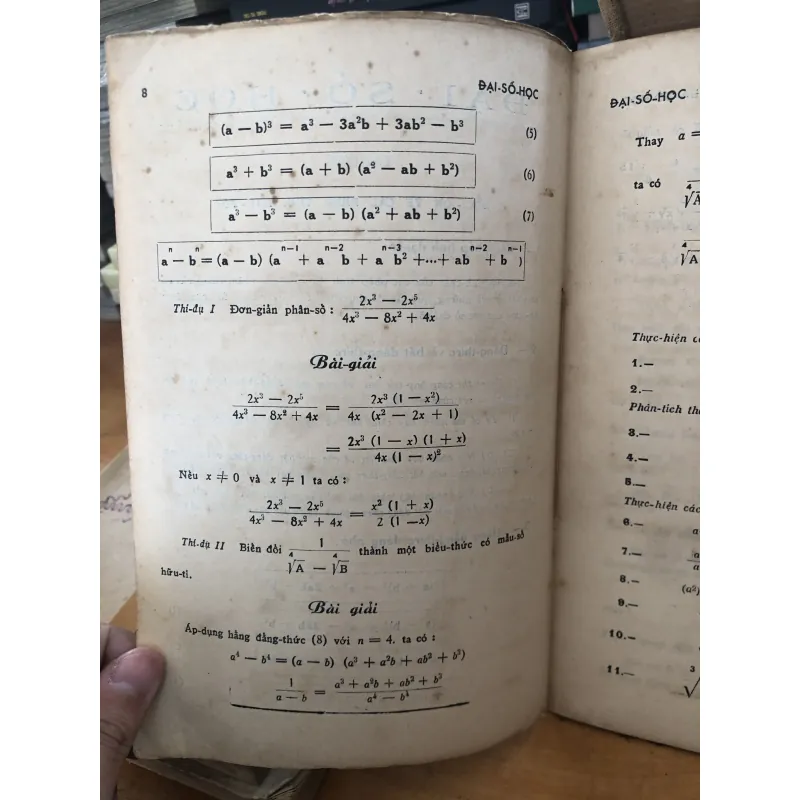 8 ĐẠI-SỐ-HỌC
(a — b)³ = a³ — 3a²b + 3ab² — b³ (5)
a³ + b³ = (a + b) (a² — ab + b²) (6)
a³ — b³ = (a — b) (a² + ab + b²) (7)
aⁿ — bⁿ = (a — b) (aⁿ⁻¹ + aⁿ⁻² b + aⁿ⁻³ b² +...+ abⁿ⁻² + bⁿ⁻¹)
Thí-dụ I Đơn-giản phân-số : (2x³ — 2x⁵)/(4x³ — 8x² + 4x)
Bài-giải
(2x³ — 2x⁵)/(4x³ — 8x² + 4x) = (2x³ (1 — x²))/(4x (x² — 2x + 1))
= (2x³ (1 — x) (1 + x))/(4x (1 — x)²)
Nếu x ≠ 0 và x ≠ 1 ta có :
(2x³ — 2x⁵)/(4x³ — 8x² + 4x) = (x² (1 + x))/(2 (1 —x))
Thí-dụ II Biến đổi 1/(⁴√A — ⁴√B) thành một biểu-thức có mẫu-số
hữu-tỉ.
Bài giải
Áp-dụng hằng đẳng-thức (8) với n = 4. ta có :
a⁴ — b⁴ = (a — b) (a³ + a²b + ab² + b³)
1/(a — b) = (a³ + a²b + ab² + b³)/(a⁴ — b⁴)
ĐẠI-SỐ-HỌC
Thay a =
ta có
⁴√A
⁴√A
Thực-hiện
1.—
2.—
Phân-tích
3.—
4.—
5.—
Thực-hiện các
6.—
7.—
8.— (a²)
9.—
10.—
11.— ³√